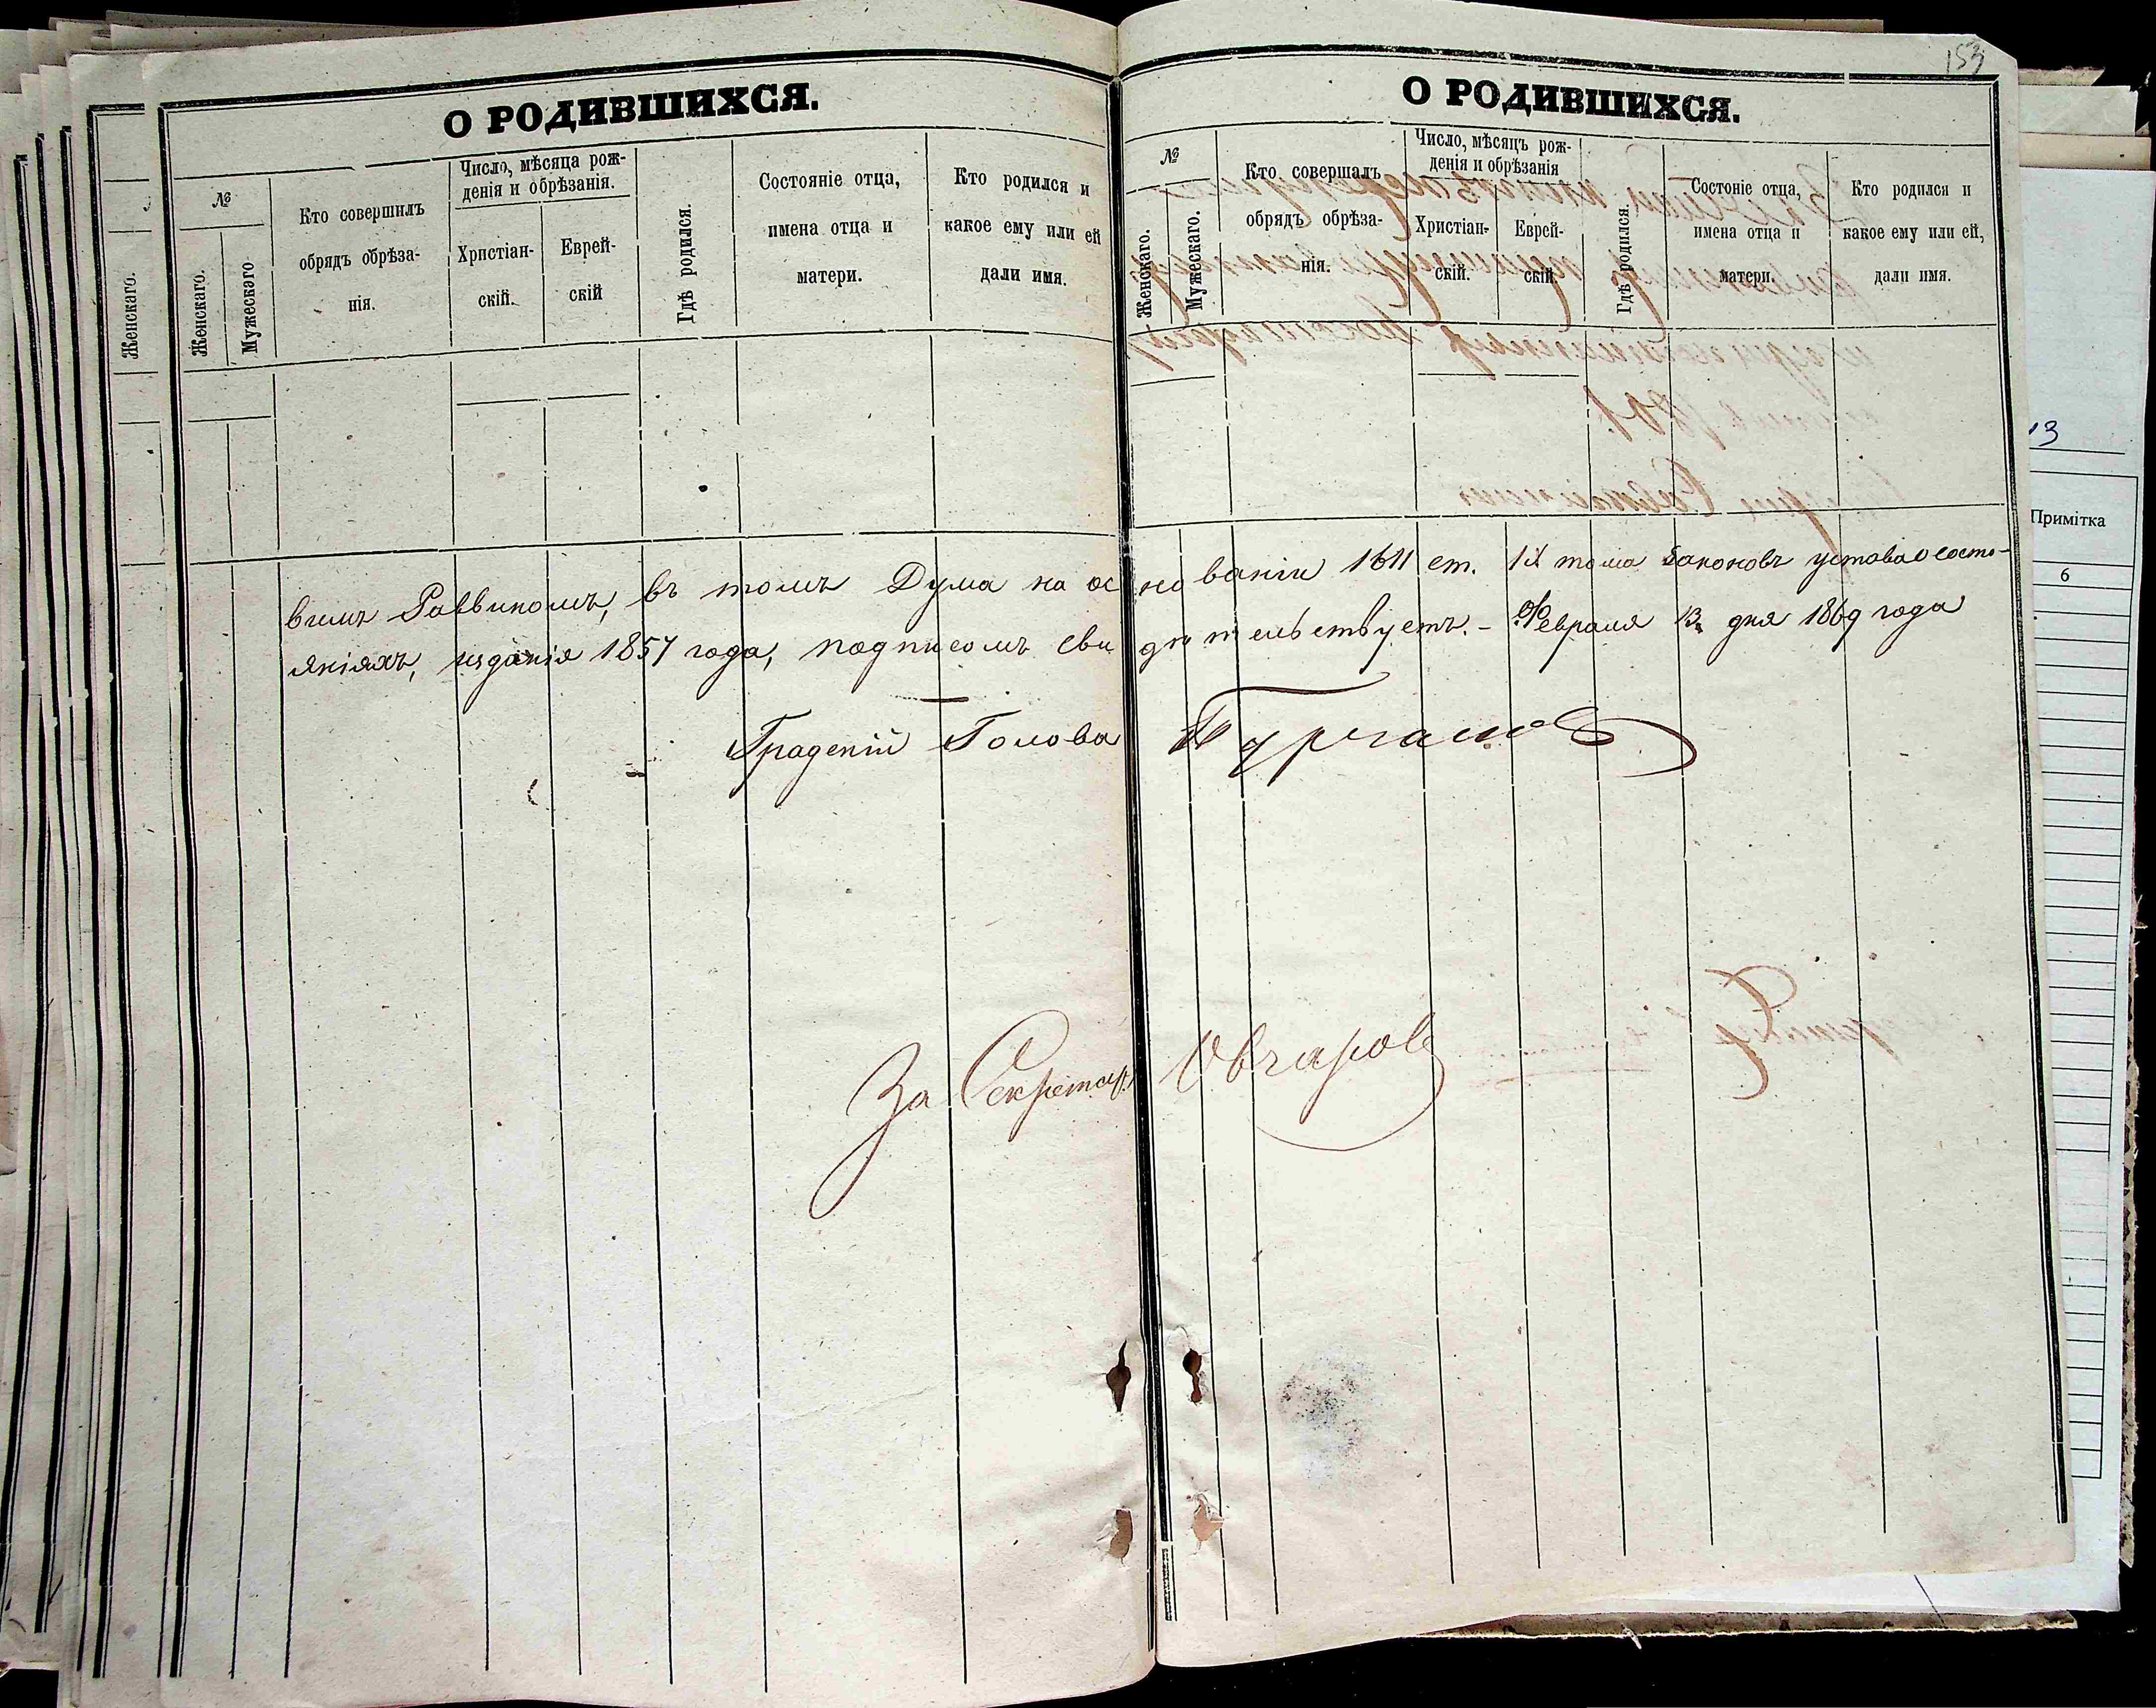 153
О РОДИВШИХСЯ.
№
Женскаго.
Мужескаго
Кто совершилъ
обрядъ обрѣза-
нія.
Число, мѣсяца рож-
денія и обрѣзанія.
Христіан-
скій.
Еврей-
скій
Гдѣ родился.
Состояніе отца,
имена отца и
матери.
Кто родился и
какое ему или ей
дали имя.
Женскаго.
О РОДИВШИХСЯ.
№
Женскаго.
Мужескаго.
Кто совершалъ
обрядъ обрѣза-
нія.
Число, мѣсяцъ рож-
денія и обрѣзанія
Христіан-
скій.
Еврей-
скій.
Гдѣ родился.
Состоніе отца,
имена отца и
матери.
Кто родился и
какое ему или ей,
дали имя.
вимъ Раввиномъ, въ томъ Дума на основаніи 1611 ст. IX тома Законовъ устава о состо-
яніяхъ, изданія 1857 года, подписомъ свидѣтельствуетъ. – Февраля 13 дня 1869 года
Градскій Голова
За Секретаря Овчаров
13
Примітка
6